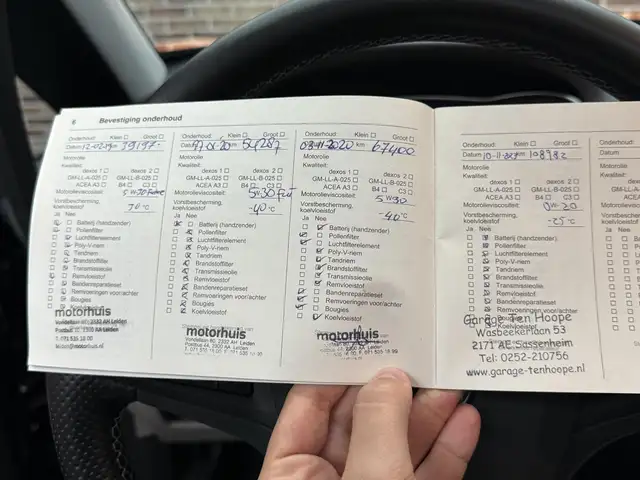 6 Bevestiging onderhoud
Onderhoud: Klein ☐ Groot ☐
Datum 12-02-19 km 39197-
Motorolie
Kwaliteit:
dexos 1 ☐ dexos 2 ☐
GM-LL-A-025 ☐ GM-LL-B-025 ☐
ACEA A3 ☐ B4 ☐ C3 ☐
Motorolieviscositeit: 5W30
Vorstbescherming,
koelvloeistof
Ja Nee
Batterij (handzender)
Pollenfilter
Luchtfilterelement
Poly-V-riem
Tandriem
Brandstoffilter
Transmissieolie
Remvloeistof
Bandenreparatieset
Remvoeringen voor/achter
Bougies
Koelvloeistof
motorhuis
Vondellaan 80, 2332 AH Leiden
T. 071 535 18 00
Onderhoud: Klein ☐ Groot ☐
km 54287
Motorolie
Kwaliteit:
dexos 1 ☐ dexos 2 ☐
GM-LL-A-025 ☐ GM-LL-B-025 ☐
ACEA A3 ☐ B4 ☐ C3 ☐
Motorolieviscositeit: 5W30
Vorstbescherming,
koelvloeistof -40°C
Ja Nee
Batterij (handzender)
Pollenfilter
Luchtfilterelement
Poly-V-riem
Tandriem
Brandstoffilter
Transmissieolie
Remvloeistof
Bandenreparatieset
Remvoeringen voor/achter
Bougies
Koelvloeistof
motorhuis
Vondellaan 80, 2332 AH Leiden
Postbus 44, 2300 AA Leiden
Onderhoud: Klein ☐ Groot ☐
Datum 03-11-2020 km 67400
Motorolie
Kwaliteit:
dexos 1 ☐ dexos 2 ☐
GM-LL-A-025 ☐ GM-LL-B-025 ☐
ACEA A3 ☐ B4 ☐ C3 ☐
Motorolieviscositeit: 5W30
Vorstbescherming,
koelvloeistof -40°C
Ja Nee
Batterij (handzender)
Pollenfilter
Luchtfilterelement
Poly-V-riem
Tandriem
Brandstoffilter
Transmissieolie
Remvloeistof
Bandenreparatieset
Remvoeringen voor/achter
Bougies
Koelvloeistof
motorhuis
Onderhoud: Klein ☐ Groot ☐
Datum km 108982
Motorolie
Kwaliteit:
dexos 1 ☐ dexos 2 ☐
GM-LL-A-025 ☐ GM-LL-B-025 ☐
ACEA A3 ☐ B4 ☐ C3 ☐
Motorolieviscositeit: 0W-20
Vorstbescherming,
koelvloeistof -25°C
Ja Nee
Batterij (handzender)
Pollenfilter
Luchtfilterelement
Poly-V-riem
Tandriem
Brandstoffilter
Transmissieolie
Remvloeistof
Bandenreparatieset
Remvoeringen voor/achter
Bougies
Koelvloeistof
Garage Ten Hoope
Wasbeekerlaan 53
2171 AE Sassenheim
Tel: 0252-210756
www.garage-tenhoope.nl